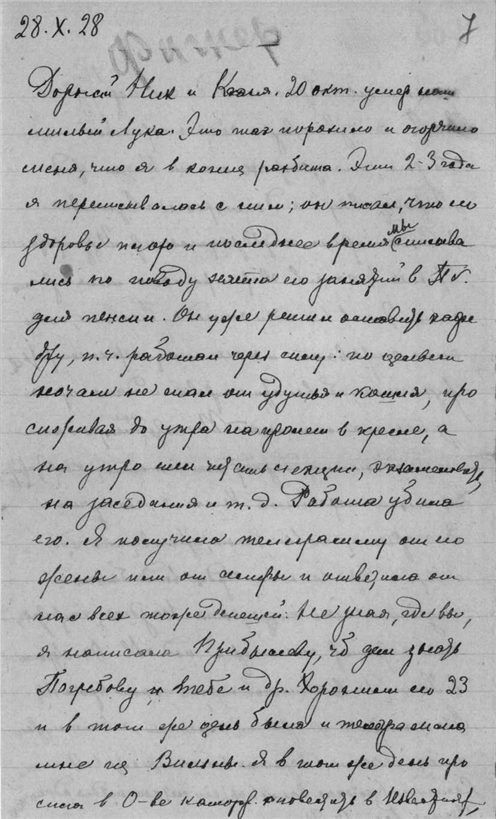 28.X.28
7
Дорогой Ник и Катя. 20 окт. умер наш
милый Лука. Это так поразило и огорчило
меня, что я в конец разбита. Эти 2-3 года
я переписывалась с ним; он писал, что его
здоровье плохо и последнее время мы списыва
лись по поводу его занятий в
для пенсии. Он уже решил оставить кафе
дру, п.ч. работал через силу: по целым
ночам не спал от удушья и кашля, про
сиживая до утра на пролет в кресле, а
на утро шел читать лекции, экзаменовать,
на заседания и т.д. Работа убила
его. Я получила телеграмму от его
жены или от сестры и ответила от
нас всех тоже депешей. Не зная, где вы,
я написала Прибылеву, чб дал знать
Погребову, и тебе и др. Хоронили его 23
и в тот же день была и телеграмма
мне из Вильны. Я в тот же день про
сила в О-ве каторж. оповестить в Известиях,